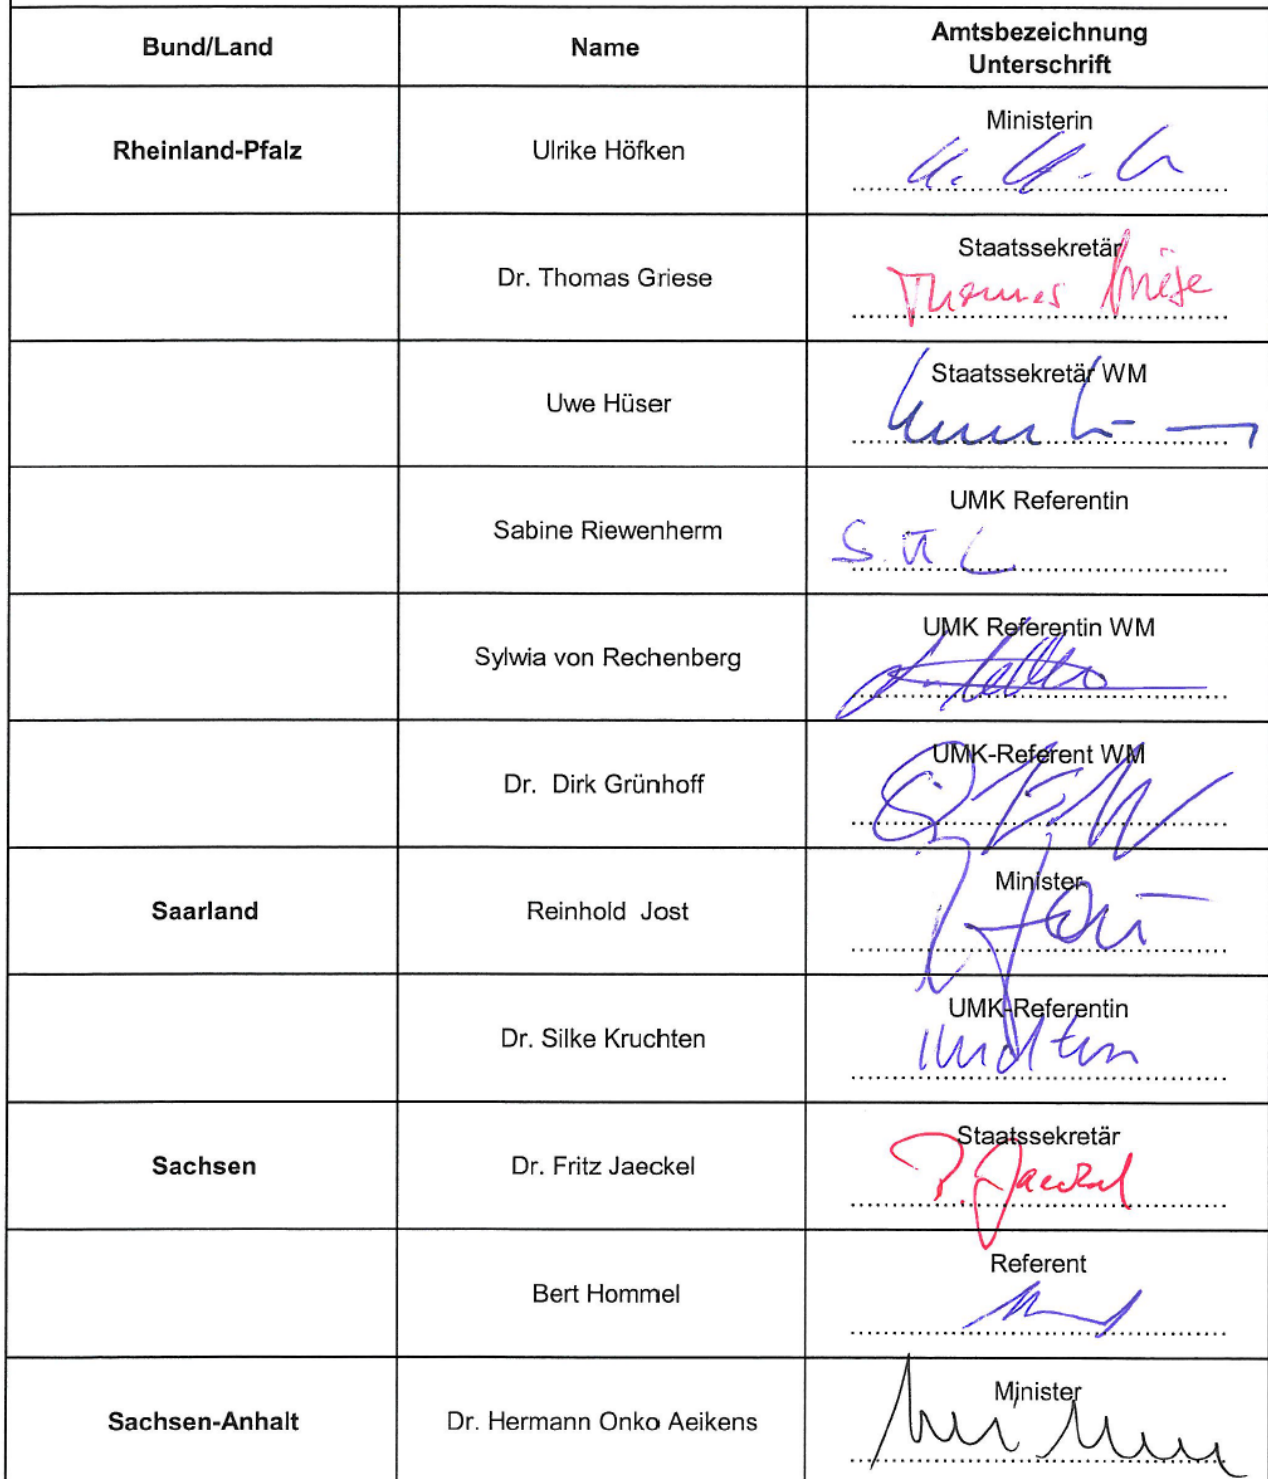 Bund/Land Name Amtsbezeichnung
Unterschrift
Rheinland-Pfalz Ulrike Höfken Ministerin
Dr. Thomas Griese Staatssekretär
Thomas Griese
Uwe Hüser Staatssekretär WM
Sabine Riewenherm UMK Referentin
Sylwia von Rechenberg UMK Referentin WM
Dr. Dirk Grünhoff UMK-Referent WM
Saarland Reinhold Jost Minister
Dr. Silke Kruchten UMK-Referentin
Sachsen Dr. Fritz Jaeckel Staatssekretär
Jaeckel
Bert Hommel Referent
Sachsen-Anhalt Dr. Hermann Onko Aeikens Minister